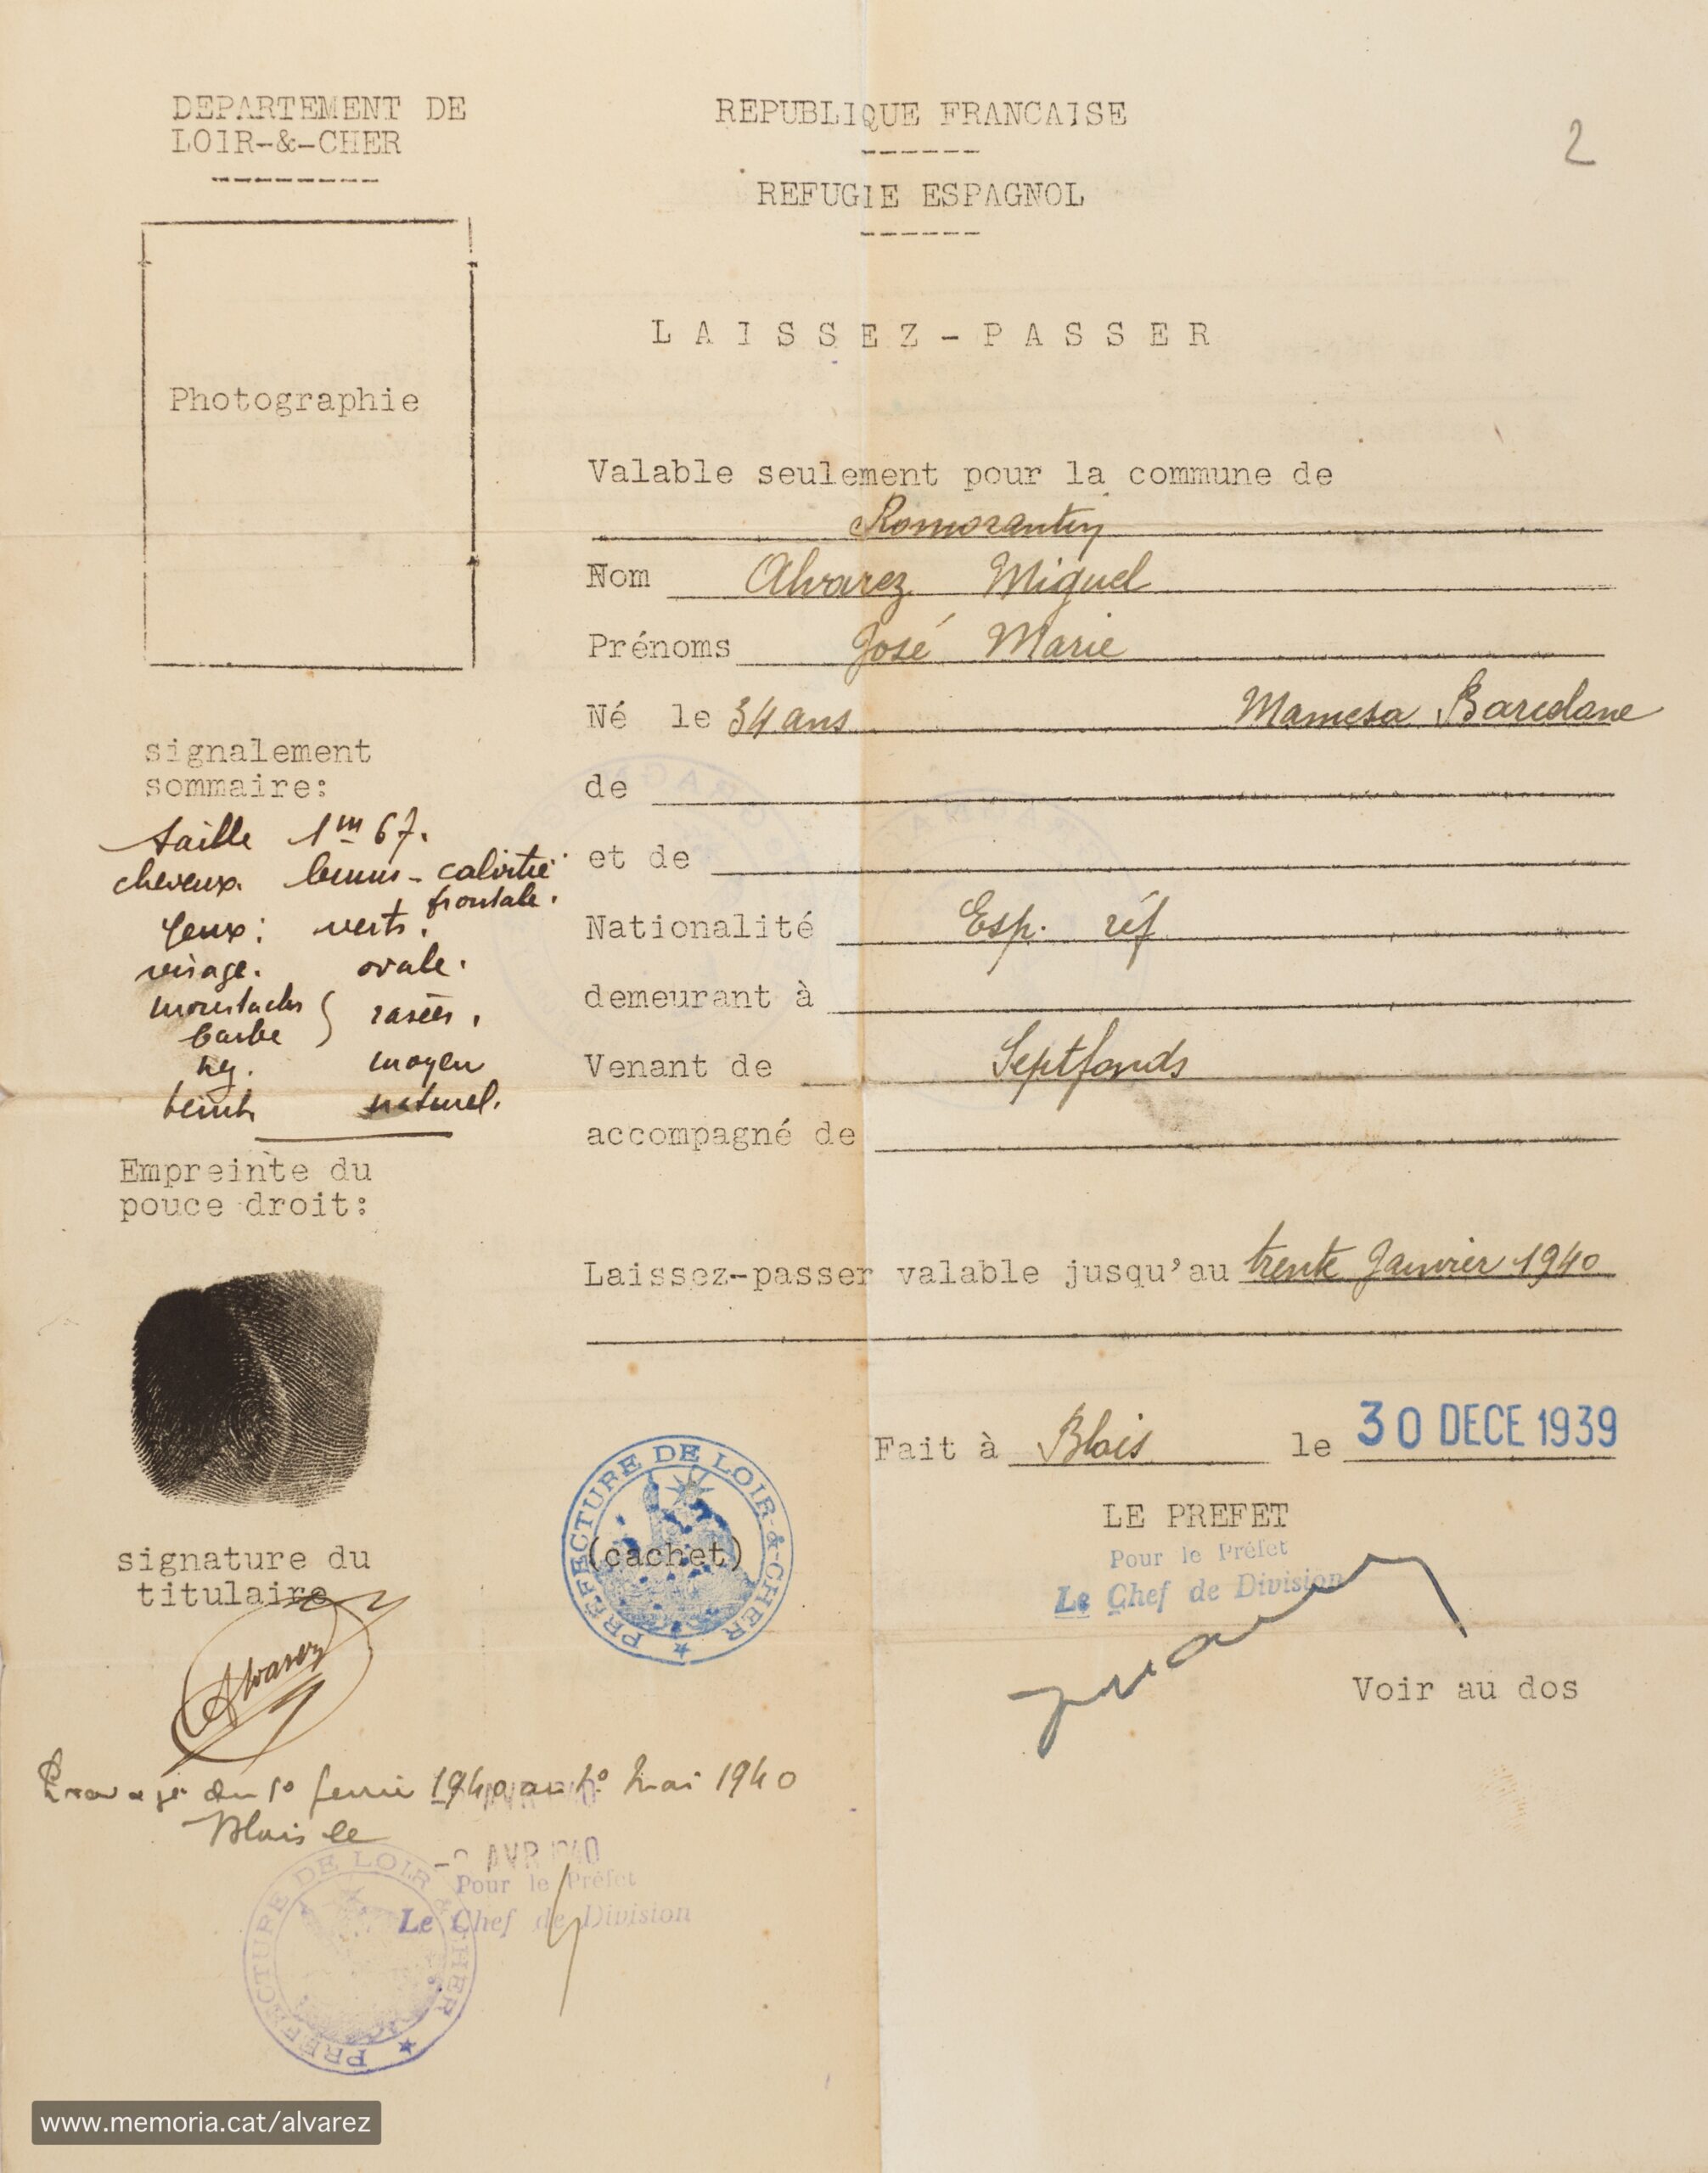 DEPARTEMENT DE
LOIR-&-CHER
REPUBLIQUE FRANCAISE
2
REFUGIE ESPAGNOL
LAISSEZ-PASSER
Photographie
Valable seulement pour la commune de
Romorantin
Nom Alvarez Miguel
Prénoms José Marie
Né le 34 ans Mamesa Barcelone
de
et de
Nationalité Esp. réf
demeurant à
Venant de Septfonds
accompagné de
signalement
sommaire:
taille 1m 67.
cheveux. bruns - calvitie
frontale.
yeux: verts.
visage. ovale.
moustaches
barbe } rasées.
nez. moyen
teint naturel.
Empreinte du
pouce droit:
Laissez-passer valable jusqu'au trente Janvier 1940
Fait à Blois le 30 DECE 1939
PREFECTURE DE LOIR-&-CHER
(cachet)
LE PREFET
Pour le Préfet
Le Chef de Division
signature du
titulaire
Alvarez
Voir au dos
du 1º 1940 au Mai 1940
Blois le
AVR 1940
Pour le Préfet
Le Chef de Division
PREFECTURE DE LOIR & CHER
www.memoria.cat/alvarez